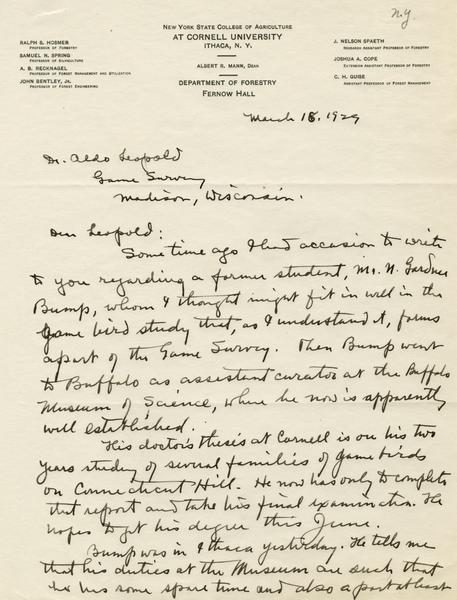 N.Y.
New York State College of Agriculture
AT CORNELL UNIVERSITY
ITHACA, N. Y.
ALBERT R. MANN, Dean
DEPARTMENT OF FORESTRY
FERNOW HALL
RALPH S. HOSMER
Professor of Forestry
SAMUEL N. SPRING
Professor of Silviculture
A. B. RECKNAGEL
Professor of Forest Management and Utilization
JOHN BENTLEY, Jr.
Professor of Forest Engineering
J. NELSON SPAETH
Research Assistant Professor of Forestry
JOSHUA A. COPE
Extension Assistant Professor of Forestry
C. H. GUISE
Assistant Professor of Forest Management
March 18, 1929
Dr. Aldo Leopold
Game Survey
Madison, Wisconsin.
Dear Leopold:
Some time ago I had occasion to write
to you regarding a former student, Mr. N. Gardner
Bump, whom I thought might fit in well in the
game bird study that, as I understand it, forms
a part of the Game Survey. Then Bump went
to Buffalo as assistant curator at the Buffalo
Museum of Science, where he now is apparently
well established.
His doctor's thesis at Cornell is on his two
years study of several families of game birds
on Connecticut Hill. He now has only to complete
that report and take his final examination. He
hopes to get his degree this June.
Bump was in Ithaca yesterday. He tells me
that his duties at the Museum are such that
he has some spare time and also a part at least